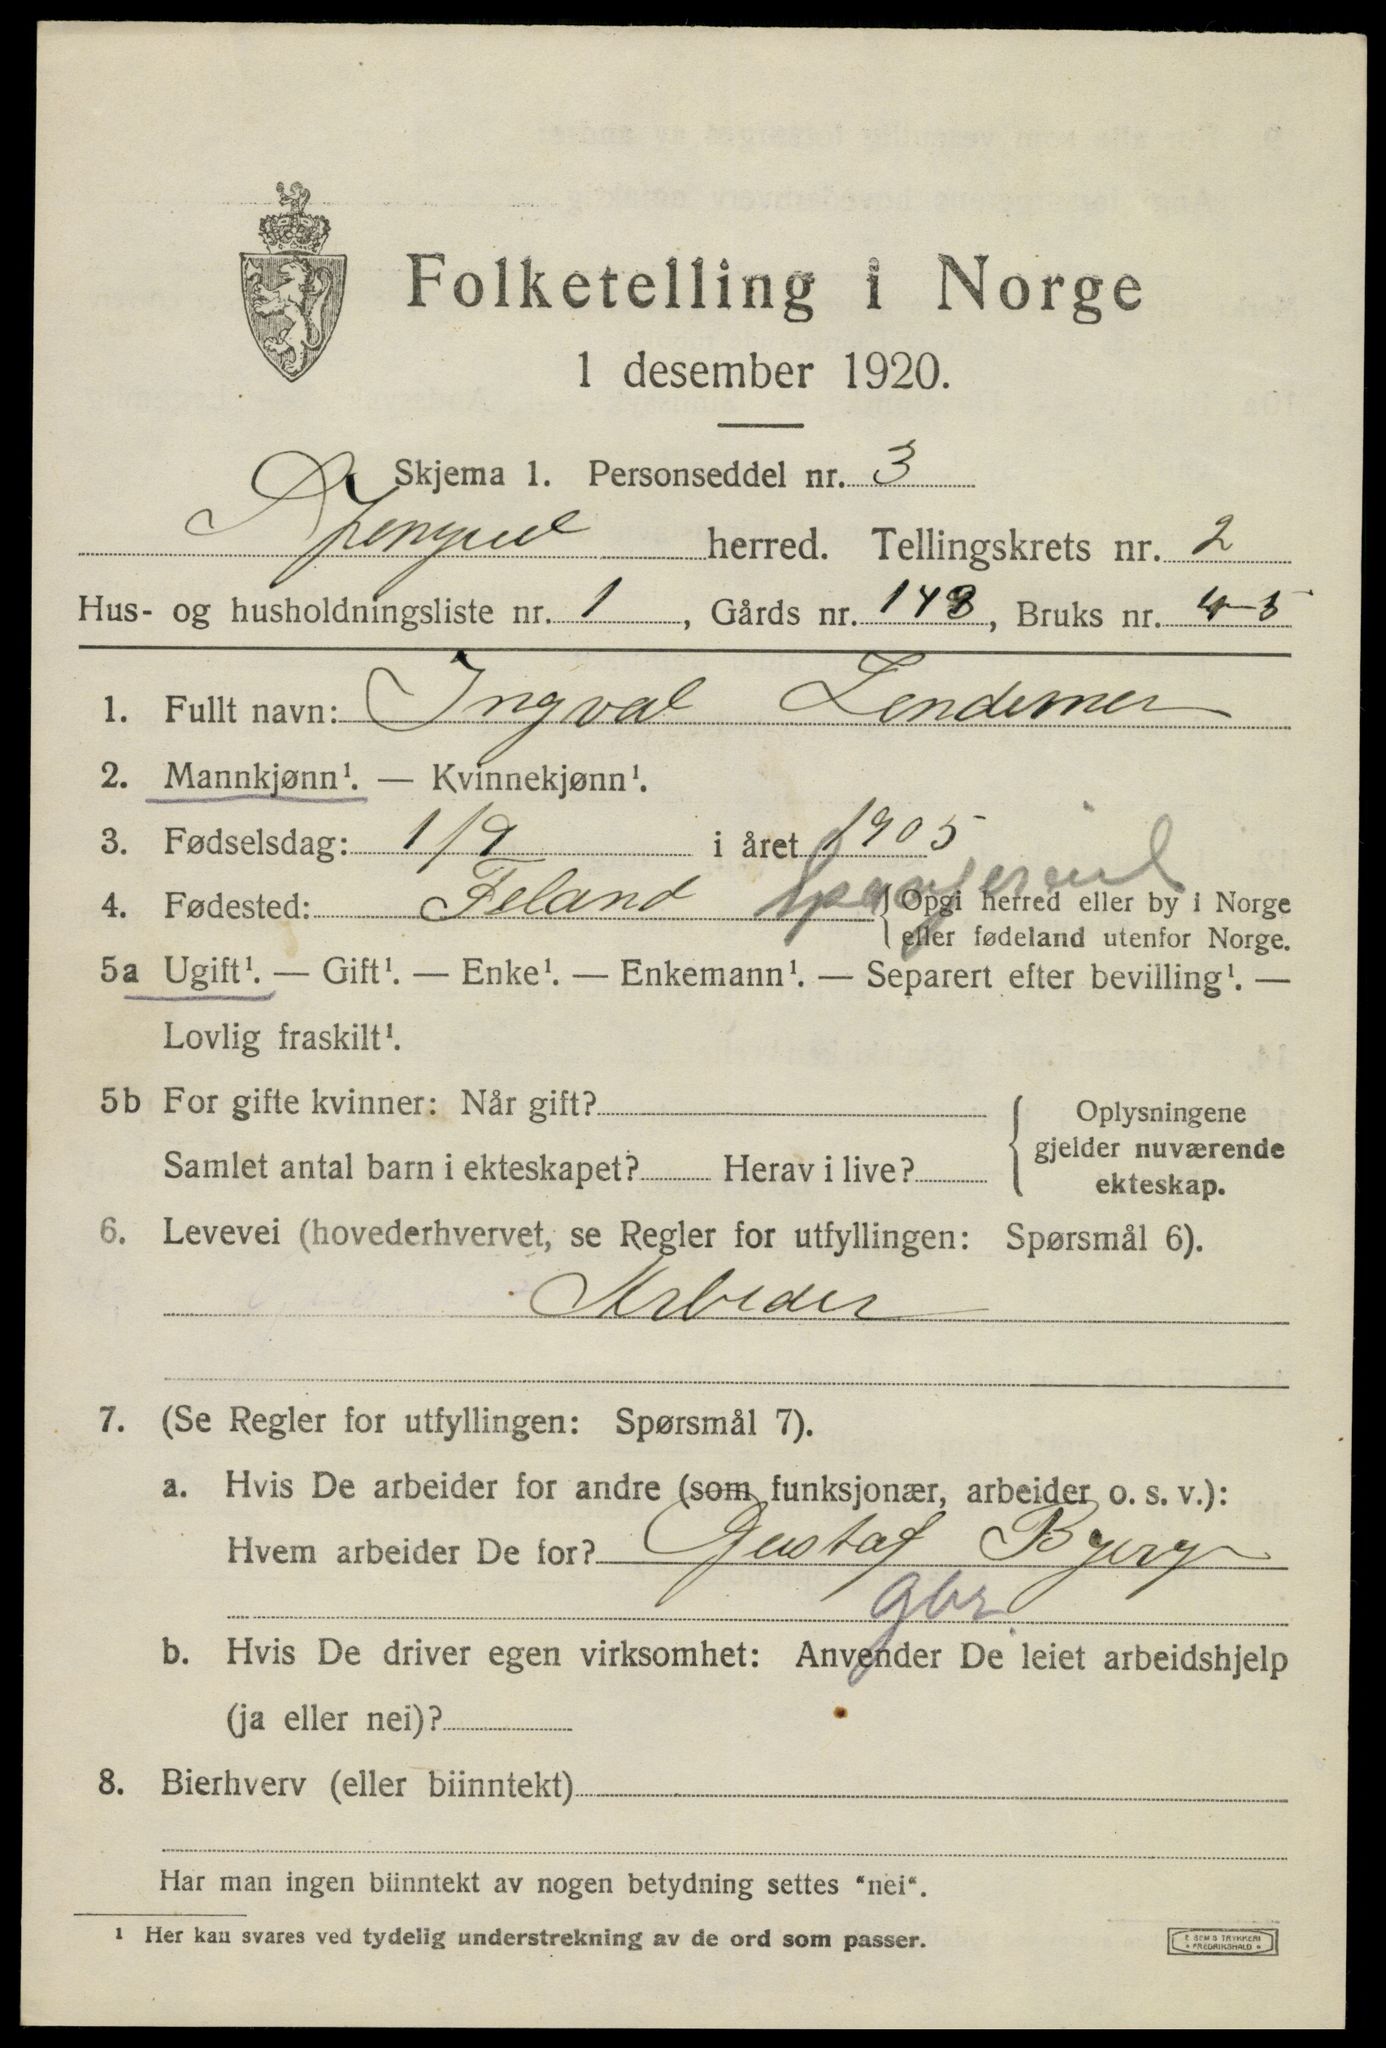 Folketelling i Norge
1 desember 1920.
Skjema 1. Personseddel nr. 3
herred. Tellingskrets nr. 2
Hus- og husholdningsliste nr. 1, Gårds nr. 148, Bruks nr. 4-5
1. Fullt navn: Ingval Lendemer
2. Mannkjønn¹. — Kvinnekjønn¹.
3. Fødselsdag: 1/9 i året 1905
4. Fødested: Feland Spangereid { Opgi herred eller by i Norge
eller fødeland utenfor Norge.
5a Ugift¹. — Gift¹. — Enke¹. — Enkemann¹. — Separert efter bevilling¹. —
Lovlig fraskilt¹.
5b For gifte kvinner: Når gift?
Samlet antal barn i ekteskapet? Herav i live?
{ Oplysningene
gjelder nuværende
ekteskap.
6. Levevei (hovederhvervet, se Regler for utfyllingen: Spørsmål 6).
Arbeider
7. (Se Regler for utfyllingen: Spørsmål 7).
a. Hvis De arbeider for andre (som funksjonær, arbeider o. s. v.):
Hvem arbeider De for? Gustaf Bjerg
gbr.
b. Hvis De driver egen virksomhet: Anvender De leiet arbeidshjelp
(ja eller nei)?
8. Bierhverv (eller biinntekt)
Har man ingen biinntekt av nogen betydning settes "nei".
¹ Her kan svares ved tydelig understrekning av de ord som passer.
E. SEM'S TRYKKERI
• FREDRIKSHALD •